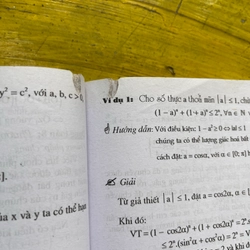 y² = c², với a, b, c > 0
].
ủa x và y ta có thể
Ví dụ 1: Cho số thực a thoả mãn |a| ≤ 1, chứn
(1 – a)ⁿ + (1 + a)ⁿ ≤ 2ⁿ, ∀n ∈ N
Hướng dẫn: Với điều kiện: 1 – a² ≥ 0 ⇔ |a| ≤ 1
chúng ta có thể lượng giác hoá bất
cách đặt: a = cosα, với α ∈ [0; π]
Giải
Từ giả thiết |a| ≤ 1, đặt a = cos2α, α ∈ [
Khi đó:
VT = (1 – cos2α)ⁿ + (1 + cos2α)ⁿ =